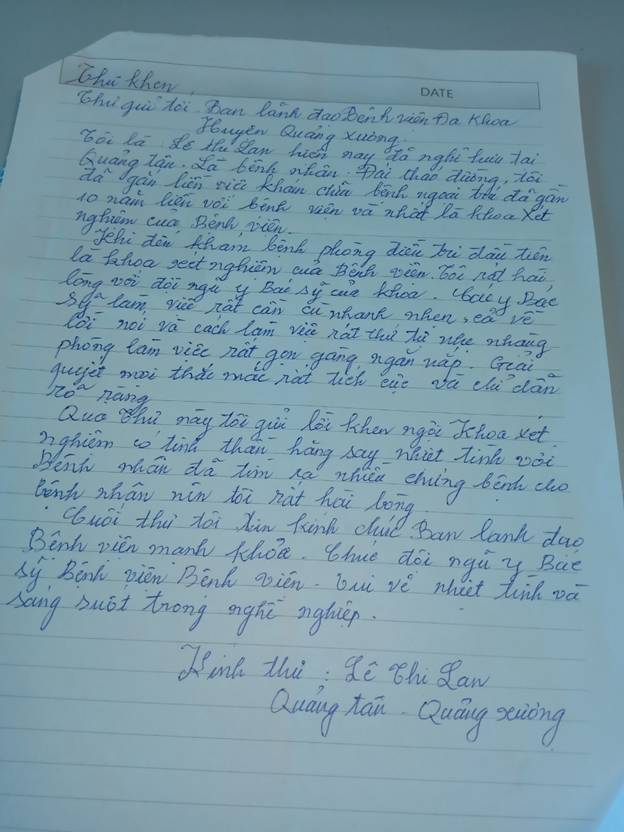 Thư khen
DATE
Thư gửi tới Ban lãnh đạo Bệnh viện Đa Khoa
Huyện Quảng Xương.
Tôi là Lê thị Lan hiện nay đã nghỉ hưu tại
Quảng tân. Là bệnh nhân Đái tháo đường, tôi
đã gắn liền việc khám chữa bệnh ngoại trú đã gần
10 năm liền với bệnh viện và nhất là khoa xét
nghiệm của Bệnh viện.
Khi đến khám bệnh phòng điều trị đầu tiên
là khoa xét nghiệm của Bệnh viện. Tôi rất hài
lòng với đội ngũ y Bác sỹ của khoa. Các y Bác
sỹ làm việc rất cần cù nhanh nhẹn, cả về
lời nói và cách làm việc rất thứ tự nhẹ nhàng
phòng làm việc rất gọn gàng ngăn nắp. Giải
quyết mọi thắc mắc rất tích cực và chỉ dẫn
rõ ràng
Qua thư này tôi gửi lời khen ngợi Khoa xét
nghiệm có tinh thần hăng say nhiệt tình với
Bệnh nhân đã tìm ra nhiều chứng bệnh cho
bệnh nhân nên tôi rất hài lòng
Cuối thư tôi xin kính chúc Ban lãnh đạo
Bệnh viện mạnh khỏe. Chúc đội ngũ y Bác
sỹ Bệnh viện Bệnh viện. Vui vẻ nhiệt tình và
sáng suốt trong nghề nghiệp.
Kính thư : Lê Thị Lan
Quảng tân - Quảng xương